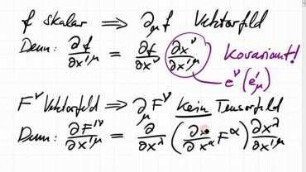 f skalar ⟹ ∂_μ f Vektorfeld
Denn: ∂f/∂x'^μ = ∂f/∂x^ν ∂x^ν/∂x'^μ Kovariant!
e^ν(e'_μ)
F^ν Vektorfeld ⟹ ∂_μ F^ν kein Tensorfeld
Denn: ∂F'^ν/∂x'^μ = ∂/∂x^λ (∂x'^ν/∂x^α F^α) ∂x^λ/∂x'^μ